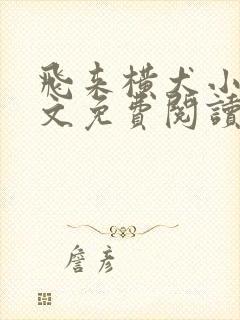 飛来横犬小
文免費閱讀
詹彥